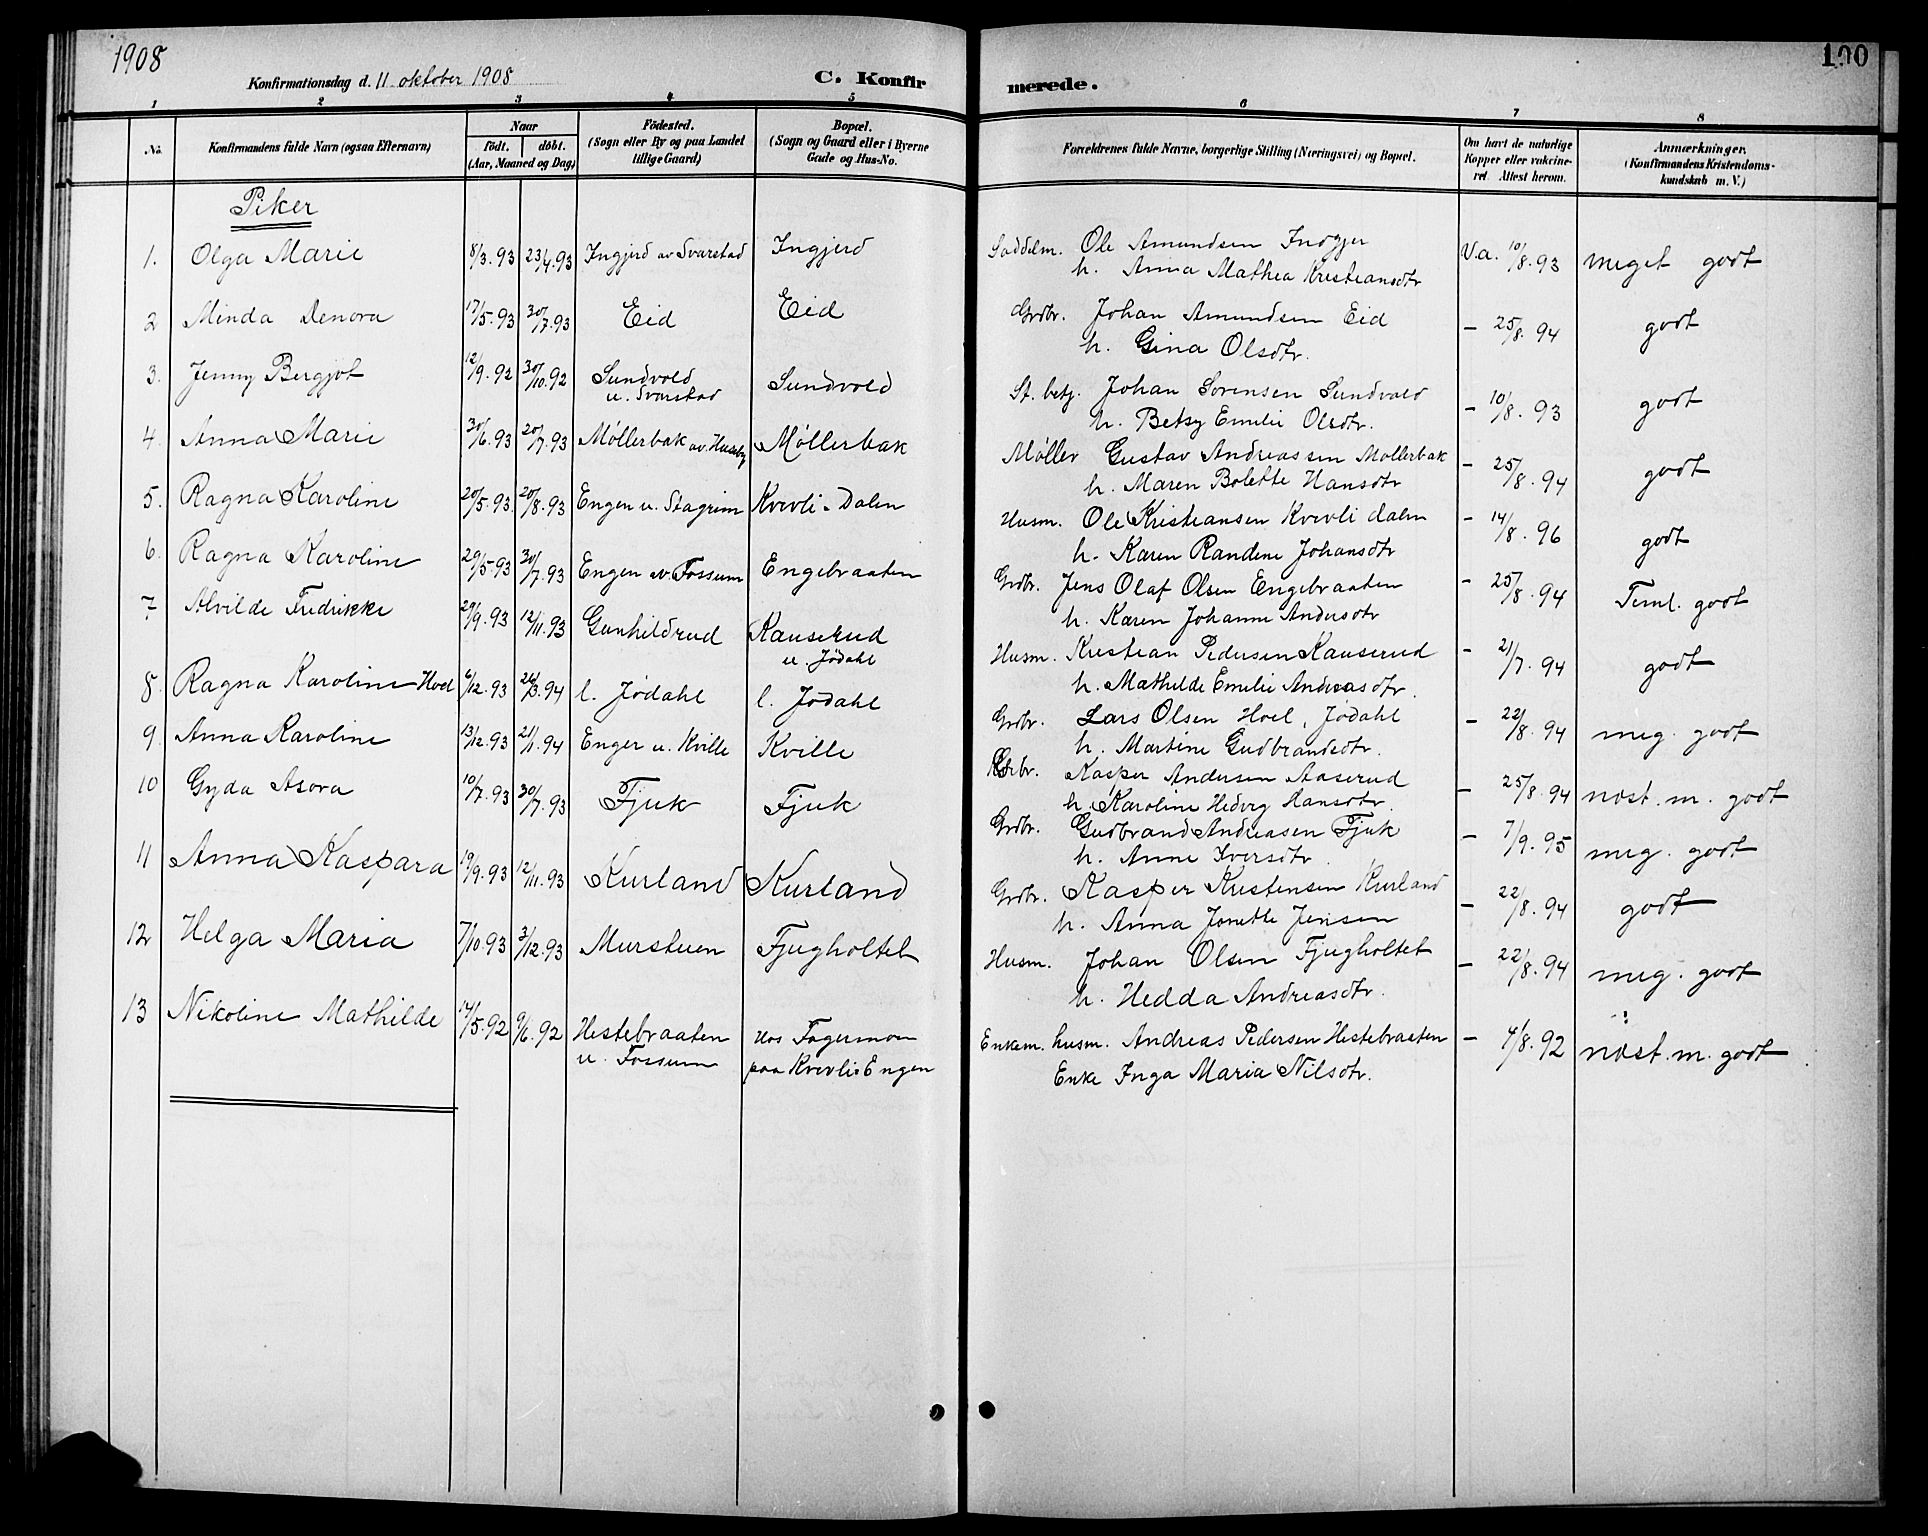 1908
100
Konfirmationsdag d. 11 oktober 1908
C. Konfirmerede.
1 2 3 4 5 6 7 8
No.
Konfirmandens fulde Navn (ogsaa Efternavn)
Naar
födt. döbt.
(Aar, Maaned og Dag)
Födested.
(Sogn eller By og paa Landet
tillige Gaard)
Bopæl.
(Sogn og Gaard eller i Byerne
Gade og Hus-No.
Forældrenes fulde Navne, borgerlige Stilling (Næringsvei) og Bopæl.
Om havt de naturlige
Kopper eller vakcine-
ret. Attest herom.
Anmærkninger.
(Konfirmandens Kristendoms-
kundskab m. V.)
Piker
1. Olga Marie 8/3.93 23/4.93 Ingjerd av Svarstad Ingjerd Saddelm. Ole Amundsen V.a. 10/8.93 meget godt
h. Anna Mathea Kristiansdtr
2 Minda Denora 17/5.93 30/7.93 Eid Eid Grdbr. Johan Amundsen Eid - 25/8.94 godt
h. Gina Olsdtr.
3. Jenny Bergjot 12/9.92 30/10.92 Sundvold Sundvold St. betj. Johan Sørensen Sundvold - 10/8.93 godt
u. Svarstad h. Betsy Emilie Olsdtr.
4. Anna Marie 30/6.93 20/7.93 Møllerbak av Huseby Møllerbak Møller Gustav Andreassen Møllerbak - 25/8.94 godt
h. Maren Bolette Hansdtr
5. Ragna Karoline 20/5.93. 20/8.93 Engen u. Stagrim Kvevli-Dalen Husm. Ole Kristiansen Kvevli dalen - 14/8.96 godt
h. Karen Randine Johansdtr
6. Ragna Karoline 29/5.93 30/7.93 Engen av Fossum Engebraaten Grdbr. Jens Olaf Olsen Engebraaten - 25/8.94 Teml. godt
h. Karen Johanne Andersdtr
7 Alvilde Fredrikke 29/9.93 12/11.93 Gunhildrud Kauserud Husm. Kristian Pedersen Kauserud - 21/7.94 godt
u. Jødahl h. Mathilde Emilie Andreasdtr.
8. Ragna Karoline Hoel 6/12.93 26/3.94 l. Jødahl l. Jødahl Grdbr. Lars Olsen Hoel, Jødahl - 22/8.94 meg. godt
h. Martine Gudbrandsdtr.
9. Anna Karoline 13/12.93 21/1.94 Enger u. Kville Kville Grbr. Kasper Andersen Aaserud - 25/8.94 næst. m. godt
h. Karoline Hedvig Hansdtr.
10 Gyda Asora 10/7.93 30/7.93 Fjuk Fjuk Grdbr. Gudbrand Andreasen Fjuk - 7/9.95 meg. godt
h. Anne Iversdtr.
11 Anna Kaspara 19/9.93 12/11.93 Kurland Kurland Grdbr. Kasper Kristensen Kurland - 22/8.94 godt
h. Anna Jonette Jensen
12 Helga Maria 7/10.93 3/12.93 Murstuen Fjugholtet Husm. Johan Olsen Fjugholtet - 22/8.94 meg. godt
h. Hedda Andreasdtr.
13 Nikoline Mathilde 14/5.92 9/6.92 Hestebraaten hos Fagermoen Enkem. husm. Andreas Pedersen Hestebraaten - 4/8.92 næst. m. godt
u. Fossum paa Kvevli-Engen Enke Inga Maria Nilsdtr.